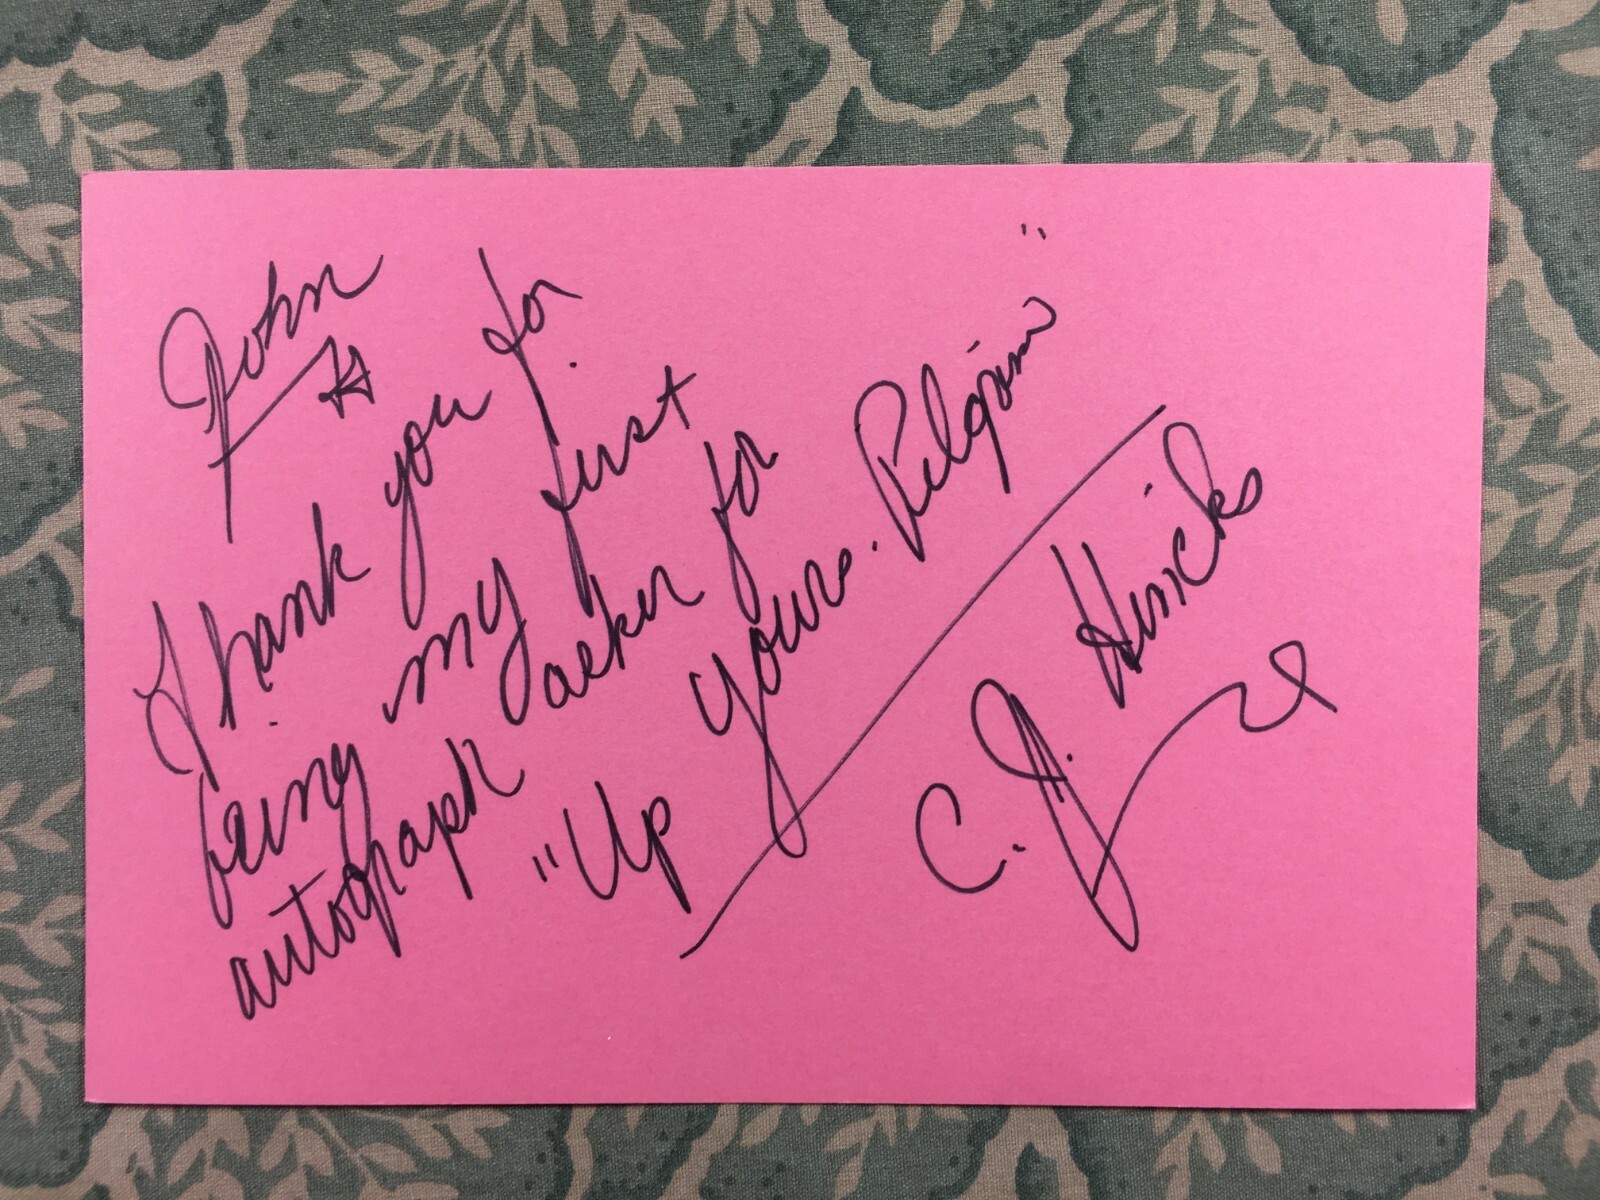 John
Thank you for
being my first
autograph seeker for
"Up Yours. Pilgrim"
C. J. Hincks